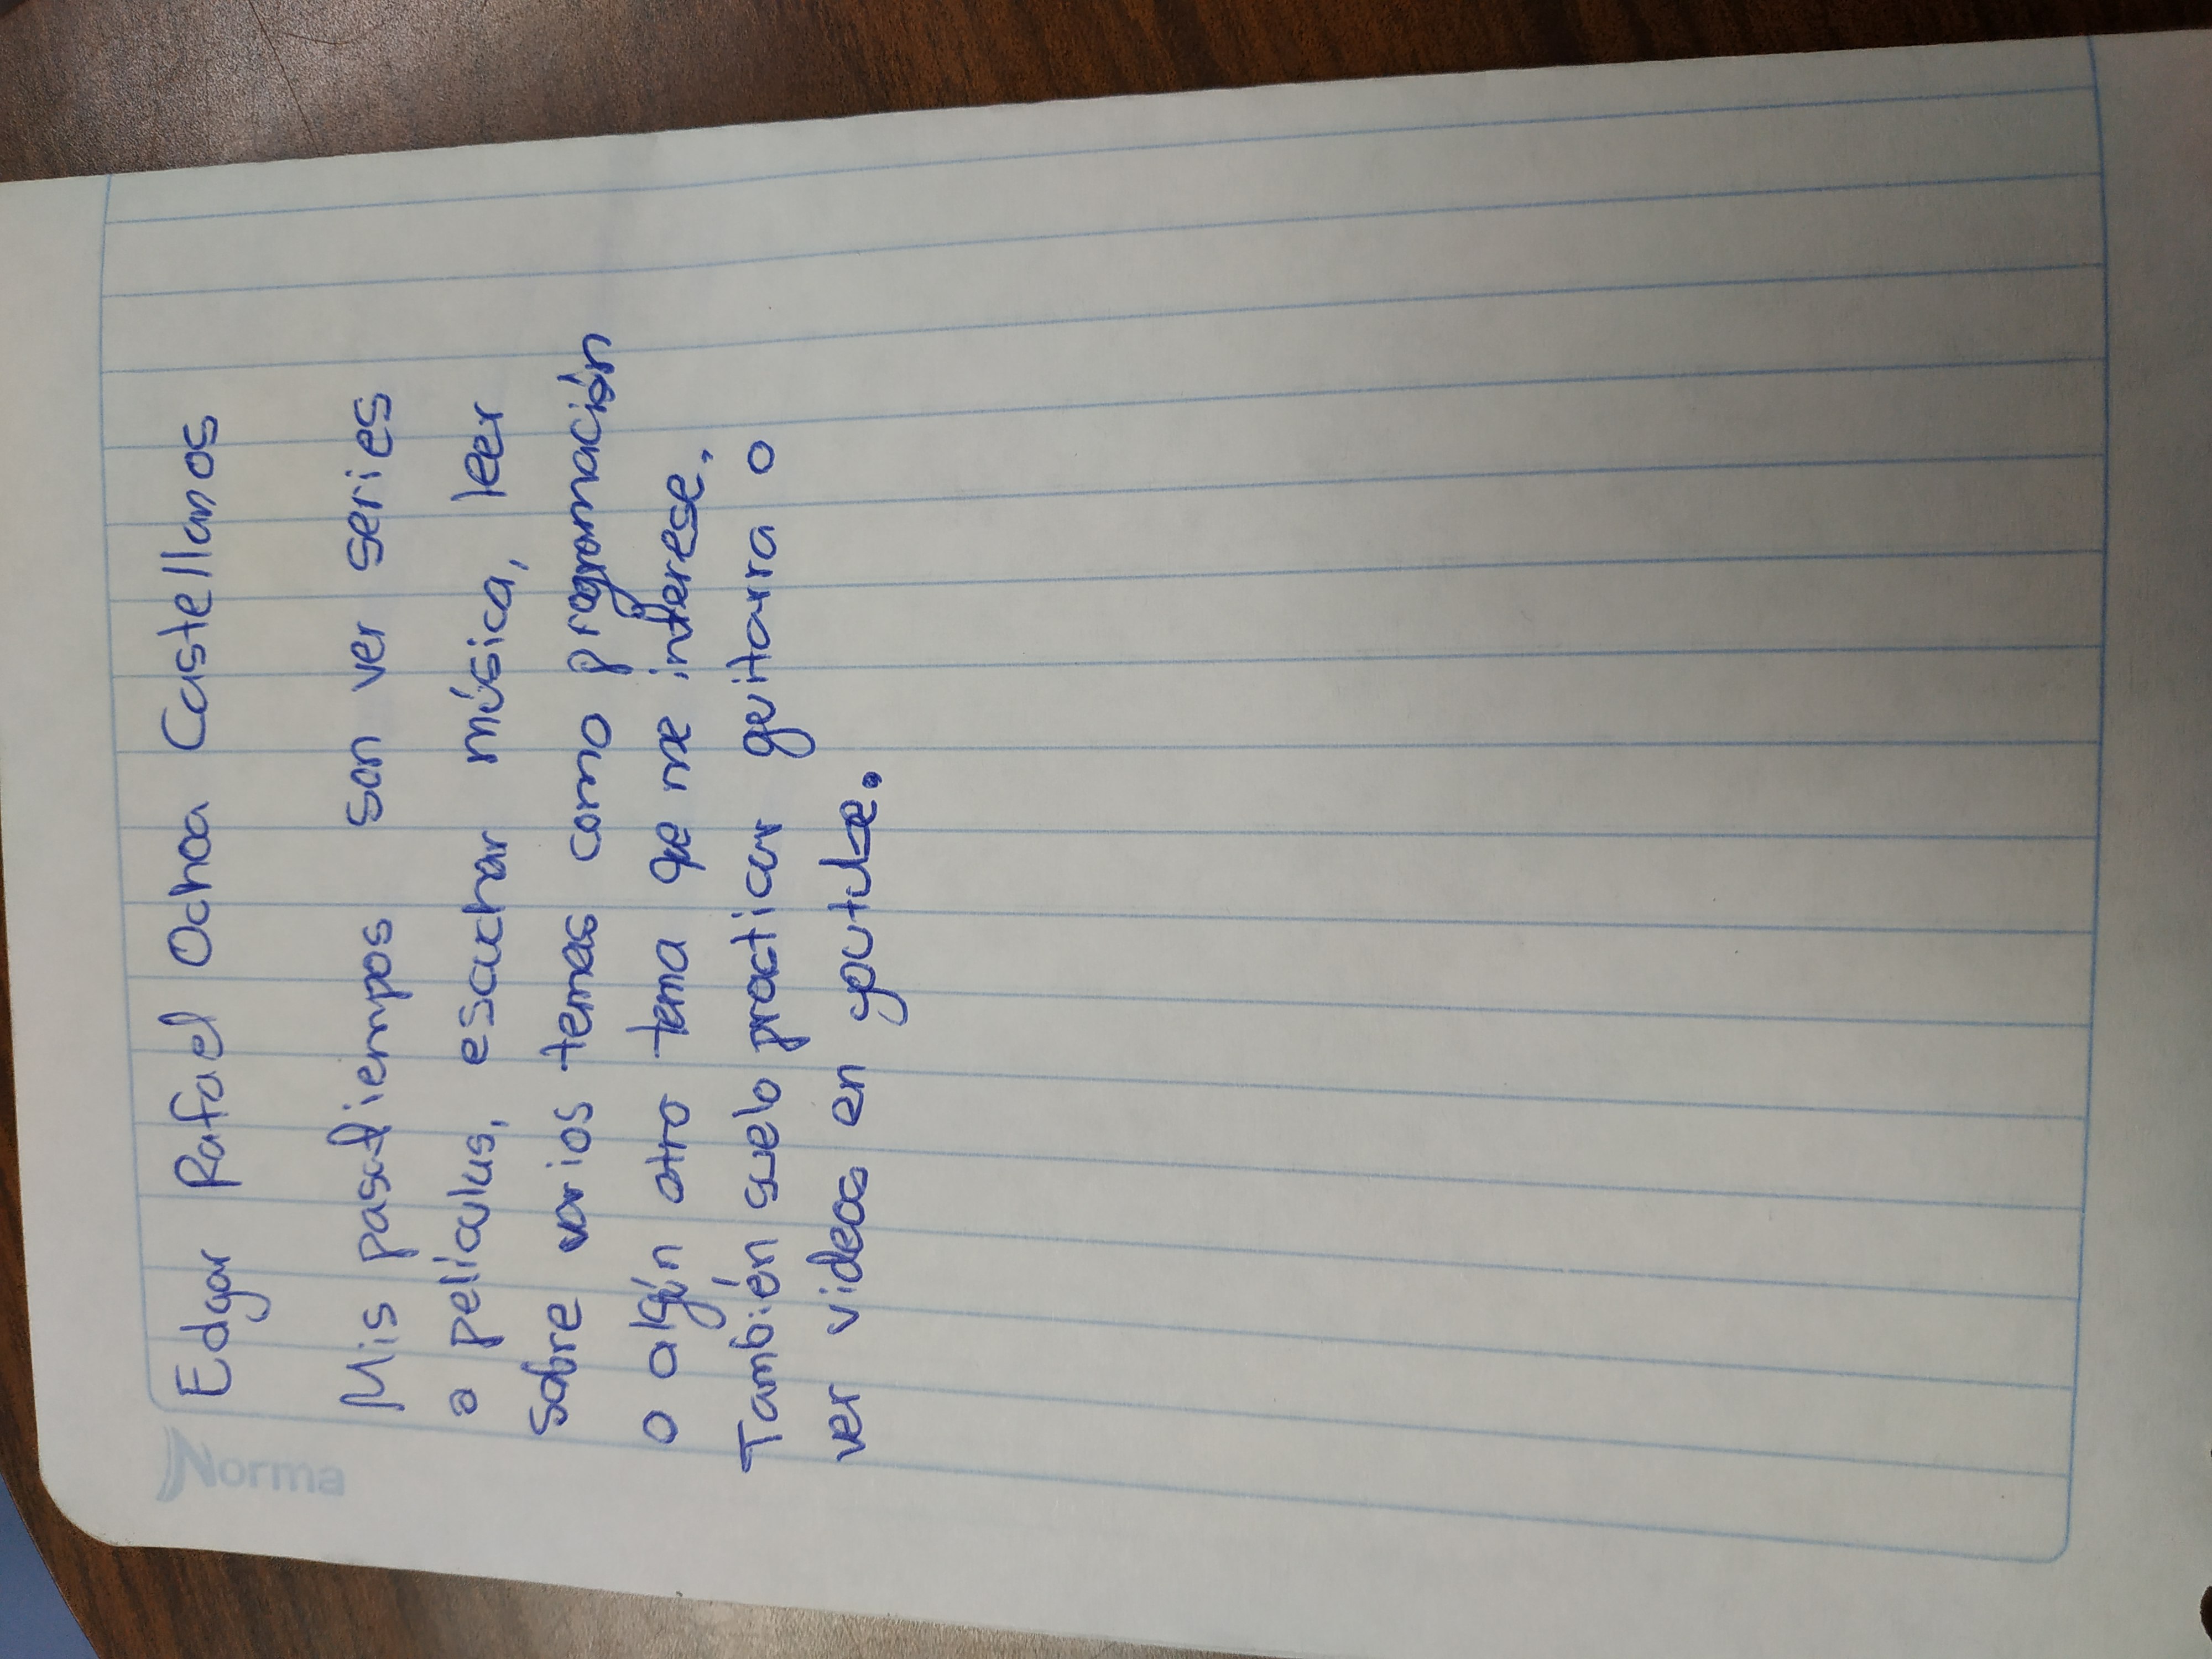 Norma
Edgar Rafael Ochoa Castellanos
Mis pasatiempos son ver series
o películas, escuchar música, leer
sobre varios temas como programación
o algún otro tema que me interese.
También suelo practicar guitarra o
ver videos en youtube.